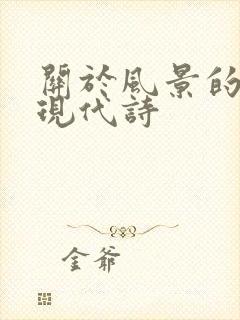 關於風景的
現代詩
金爺